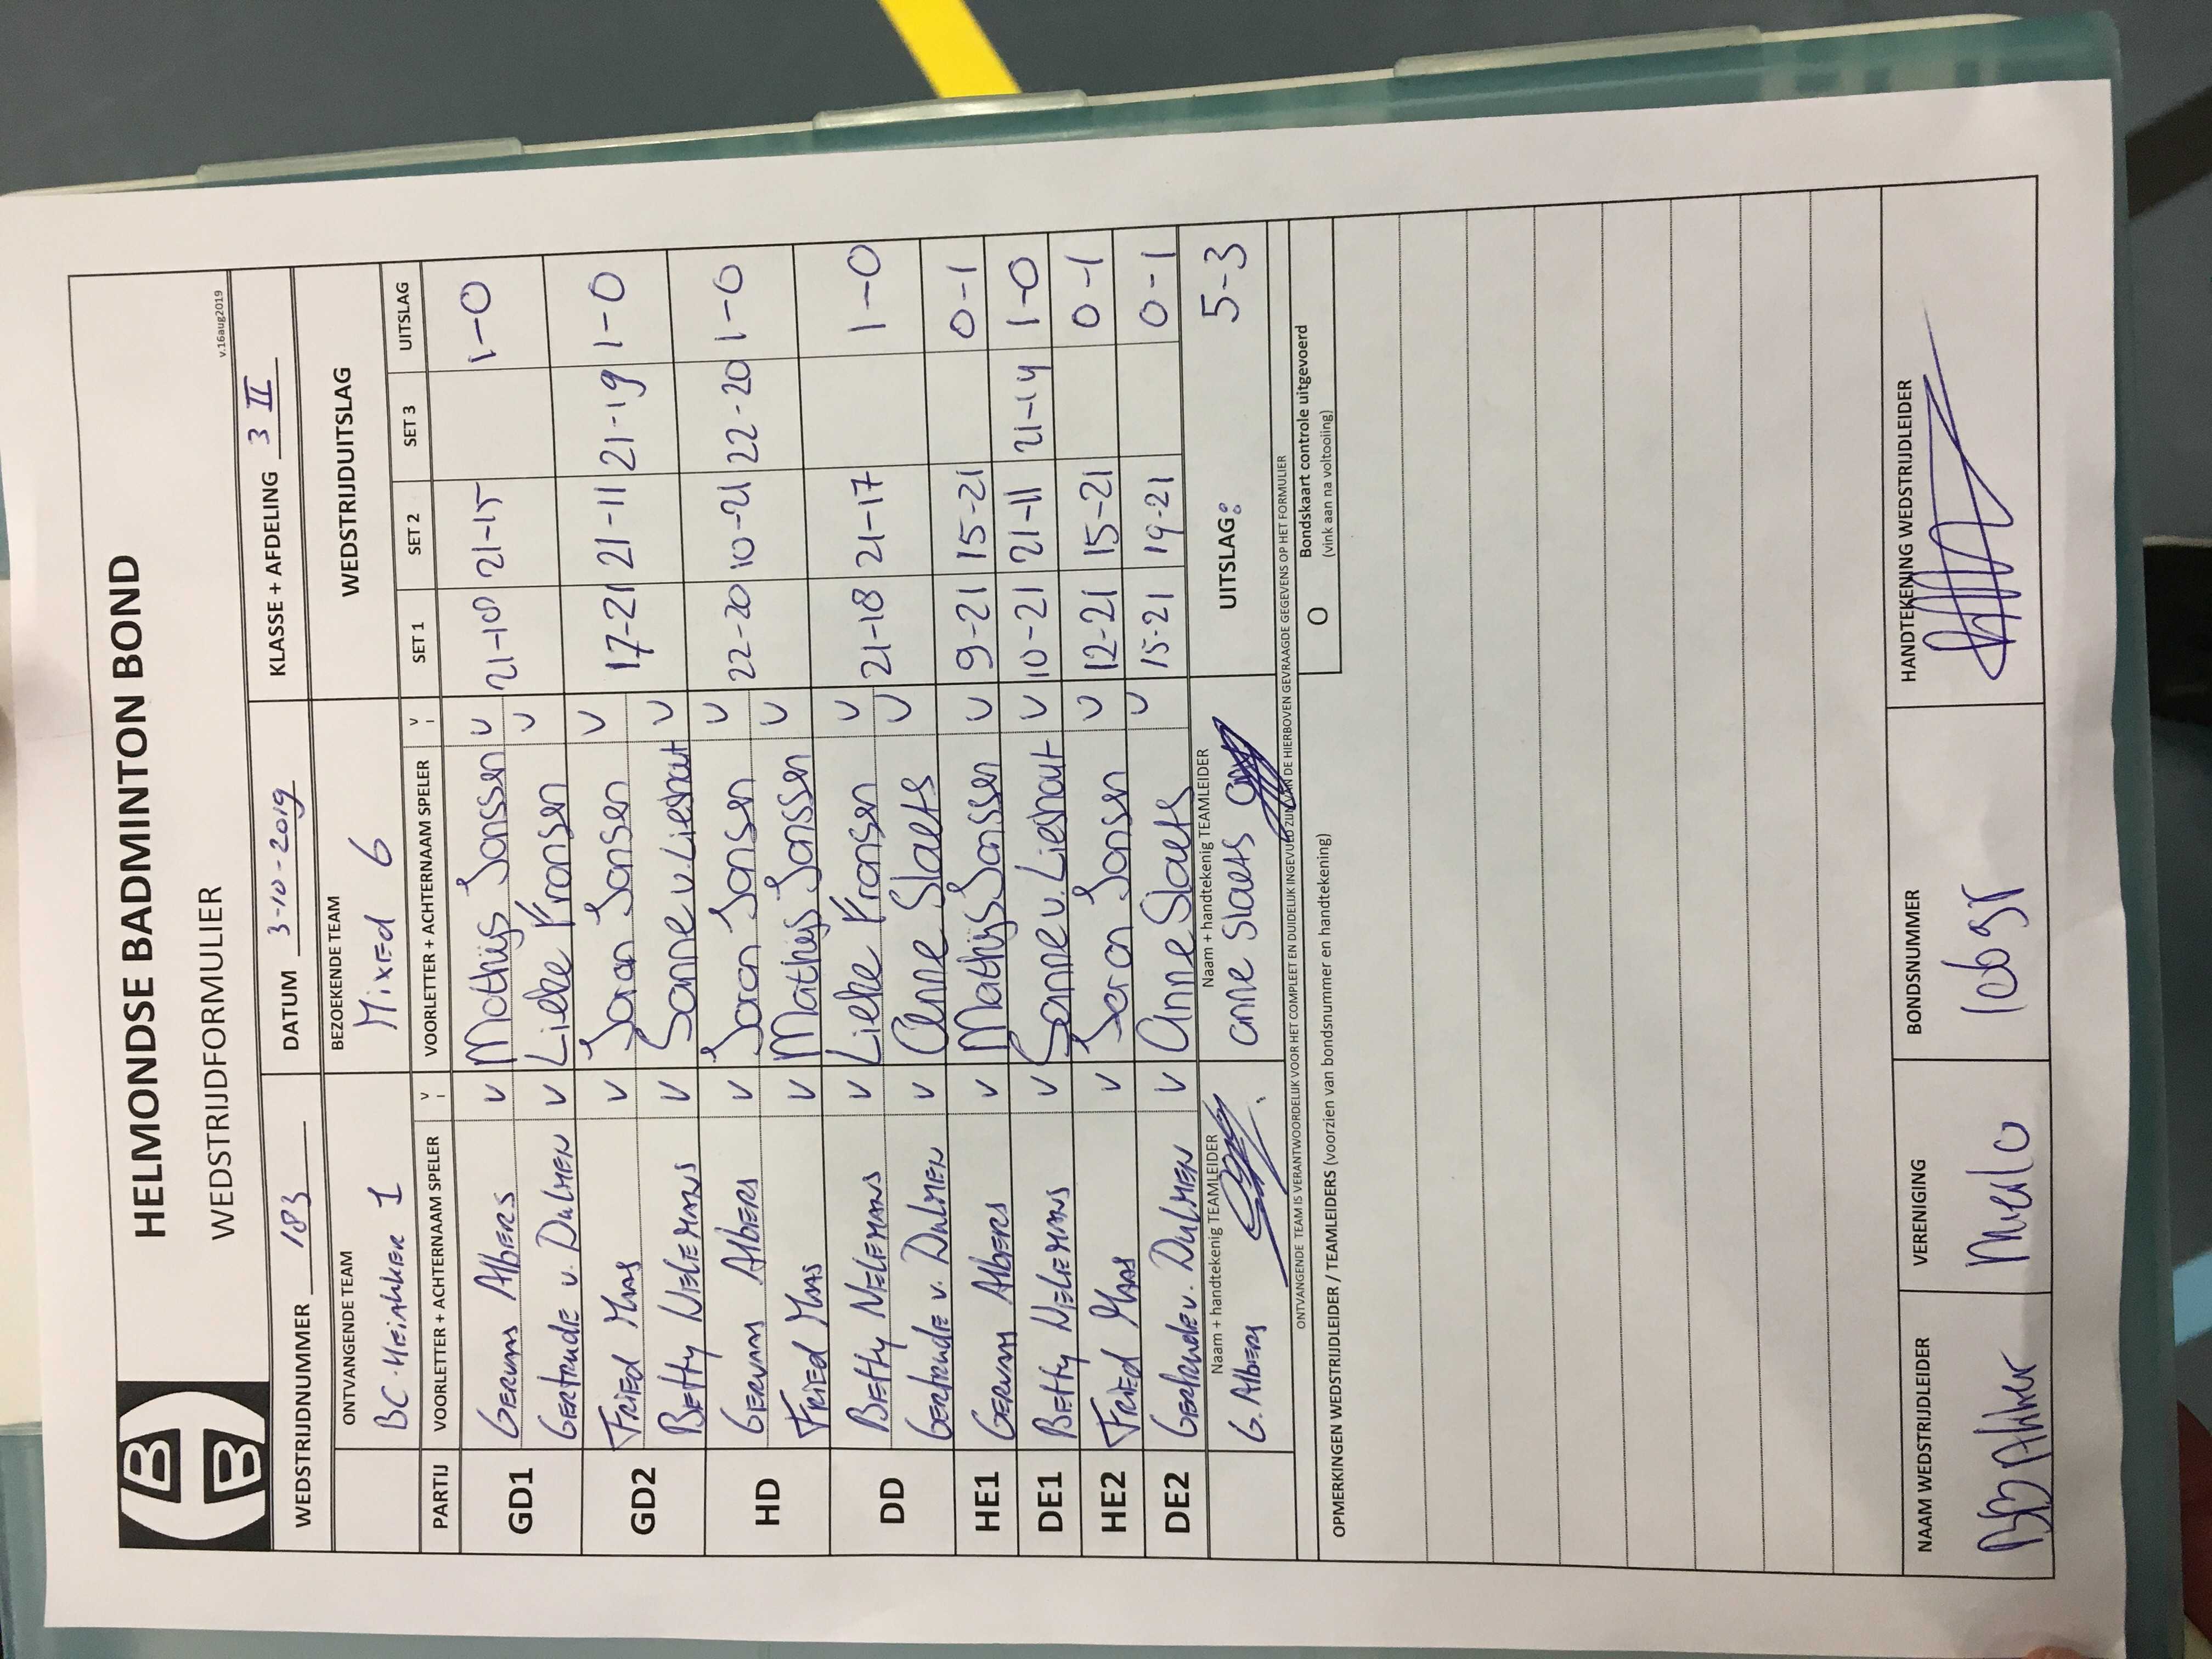 HELMONDSE BADMINTON BOND
WEDSTRIJDFORMULIER
v.16aug2019
WEDSTRIJDNUMMER 183 DATUM 3-10-2019 KLASSE + AFDELING 3 II
ONTVANGENDE TEAM BEZOEKENDE TEAM WEDSTRIJDUITSLAG
BC Heiakker 1 Mixed 6
PARTIJ VOORLETTER + ACHTERNAAM SPELER V VOORLETTER + ACHTERNAAM SPELER V SET 1 SET 2 SET 3 UITSLAG
GD1 Gervas Albers V Mathijs Janssen V 21-18 21-15 1-0
Gertrude v. Dulmen V Lieke Kransen V
GD2 Fried Maas V Jaron Jansen V 17-21 21-11 21-19 1-0
Betty Nelemans V Sanne v. Lieshout V
HD Gervas Albers V Jaron Jansen V 22-20 10-21 22-20 1-0
Fried Maas V Mathijs Janssen V
DD Betty Nelemans V Lieke Kransen V 21-18 21-17 1-0
Gertrude v. Dulmen V Anne Slaets V
HE1 Gervas Albers V Mathijs Janssen V 9-21 15-21 0-1
DE1 Betty Nelemans V Sanne v. Lieshout V 10-21 21-11 21-14 1-0
HE2 Fried Maas V Jaron Jansen V 12-21 15-21 0-1
DE2 Gertrude v. Dulmen V Anne Slaets V 15-21 19-21 0-1
Naam + handtekenig TEAMLEIDER Naam + handtekenig TEAMLEIDER UITSLAG: 5-3
G. Albers Anne Slaets
ONTVANGENDE TEAM IS VERANTWOORDELIJK VOOR HET COMPLEET EN DUIDELIJK INGEVULD ZIJN VAN DE HIERBOVEN GEVRAAGDE GEGEVENS OP HET FORMULIER
O Bondskaart controle uitgevoerd
(vink aan na voltooiing)
OPMERKINGEN WEDSTRIJDLEIDER / TEAMLEIDERS (voorzien van bondsnummer en handtekening)
NAAM WEDSTRIJDLEIDER VERENIGING BONDSNUMMER HANDTEKENING WEDSTRIJDLEIDER
Mierlo